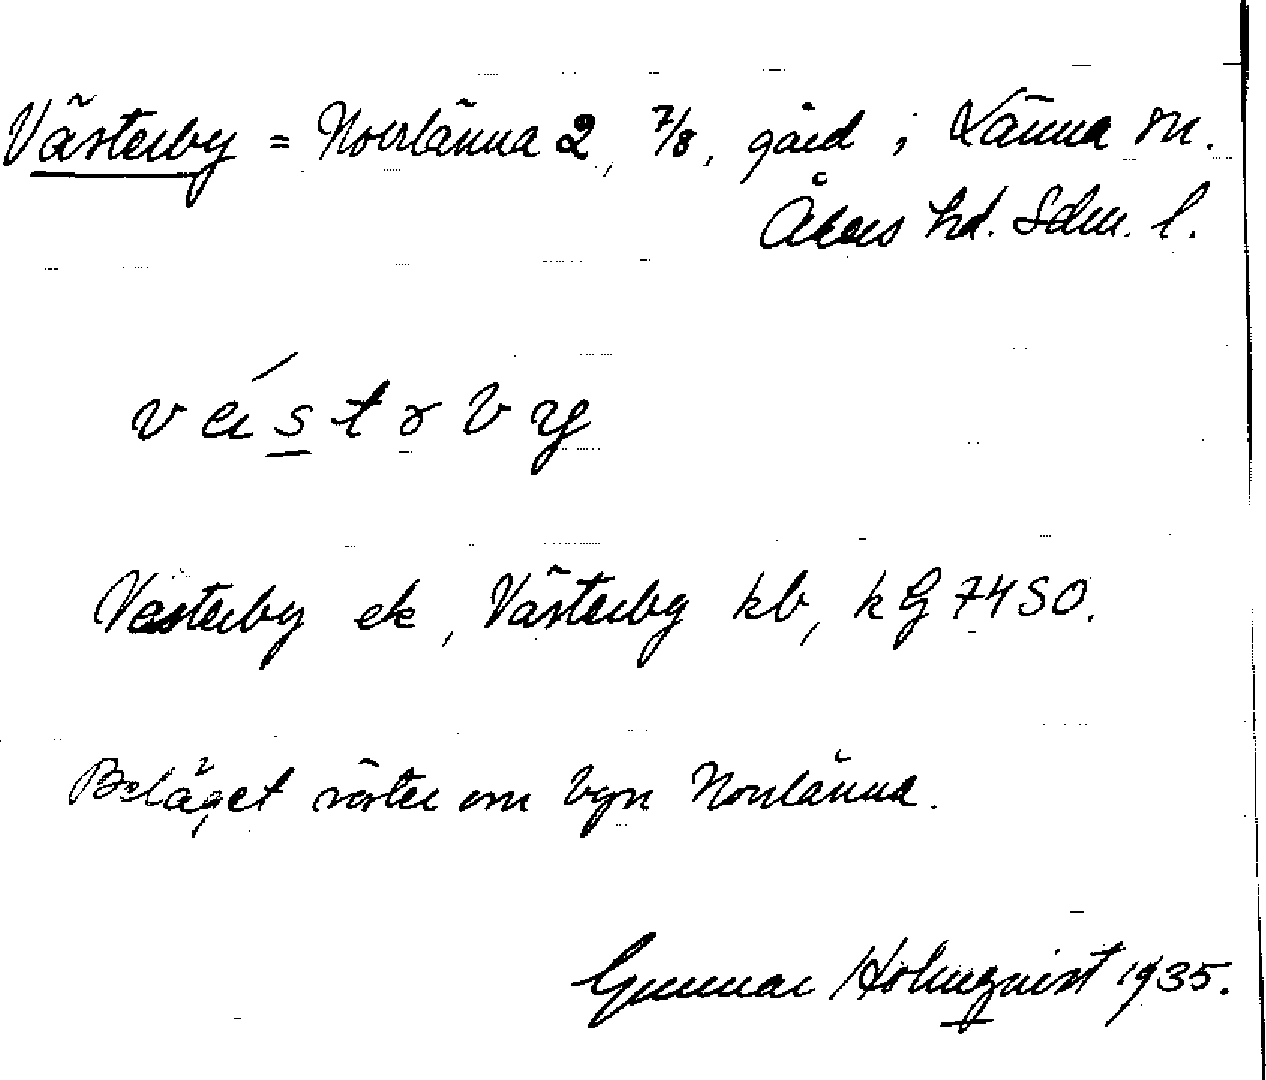 Västerby = Norrlänna 2, 7/8, gård i Länna sn.
Åkers hd. Sdm. l.
västərby
Västerby ek, Västerby kb, kG 7450.
Beläget väster om byn Norrlänna.
Gunnar Holmqvist 1935.